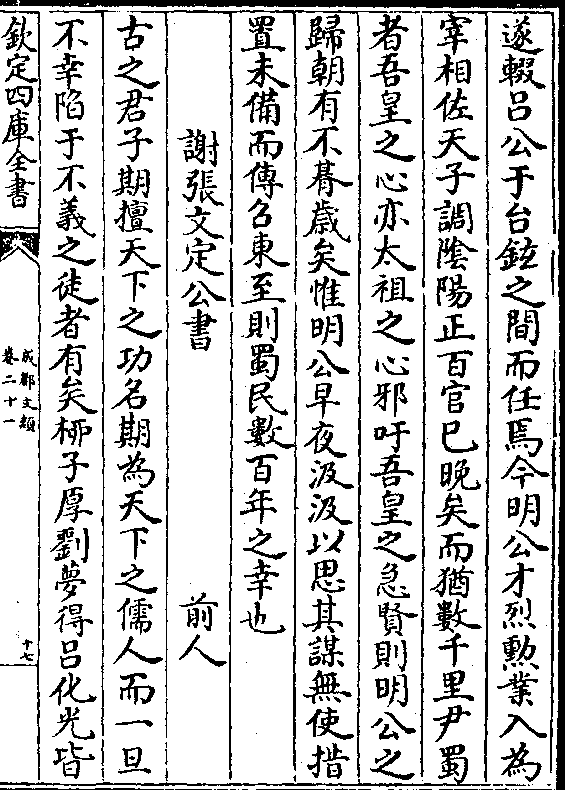 遂輟呂公于台鉉之間而任焉今明公才烈勲業入為
宰相佐天子調隂陽正百官已晚矣而猶數千里尹蜀
者吾皇之心亦太祖之心邪吁吾皇之急賢則明公之
歸朝有不朞歲矣惟明公早夜汲汲以思其謀無使措
置未備而傳召東至則蜀民數百年之幸也
謝張文定公書　　　前人
古之君子期擅天下之功名期為天下之儒人而一旦
不幸陷于不義之徒者有矣柳子厚劉夢得呂化光皆
欽定四庫全書
成都文類
卷二十一
十七